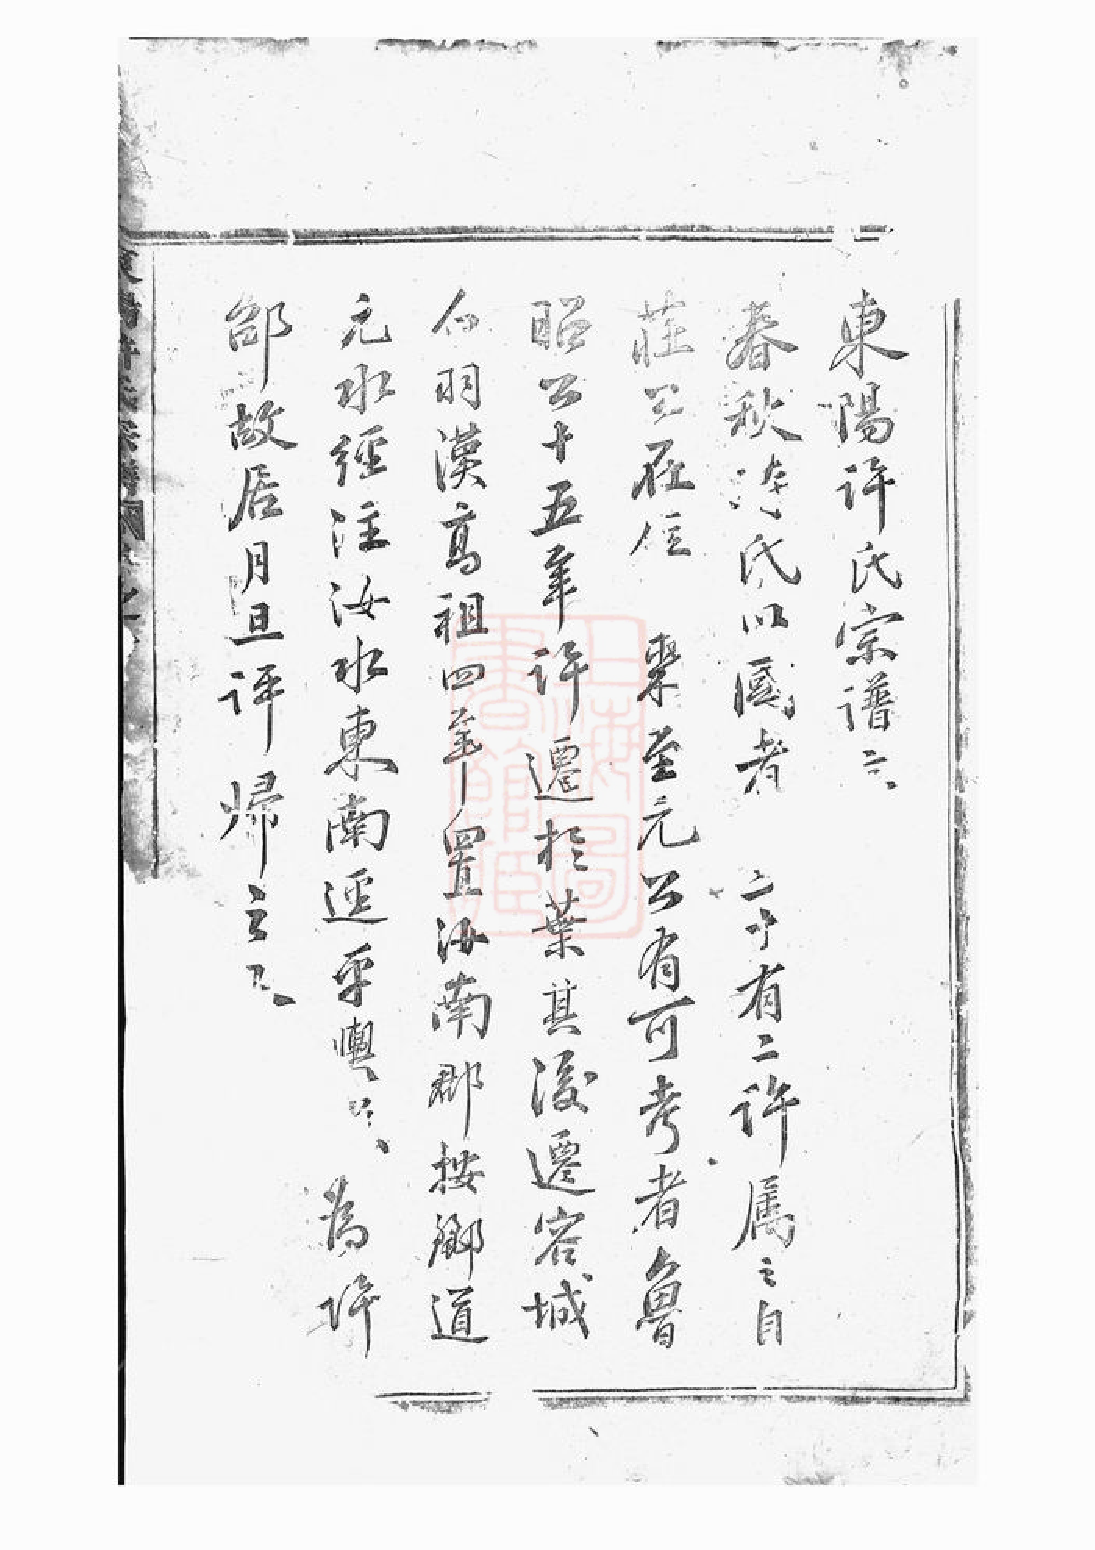 東陽許氏宗譜
春秋 氏以國者 有二許屬之自
莊公在位 至元公有可考者魯
昭公十五年許遷於葉其後遷容城
白羽漢高祖四年置汝南郡按酈道
元水經注汝水東南逕平輿 為許
邵故居月旦評歸